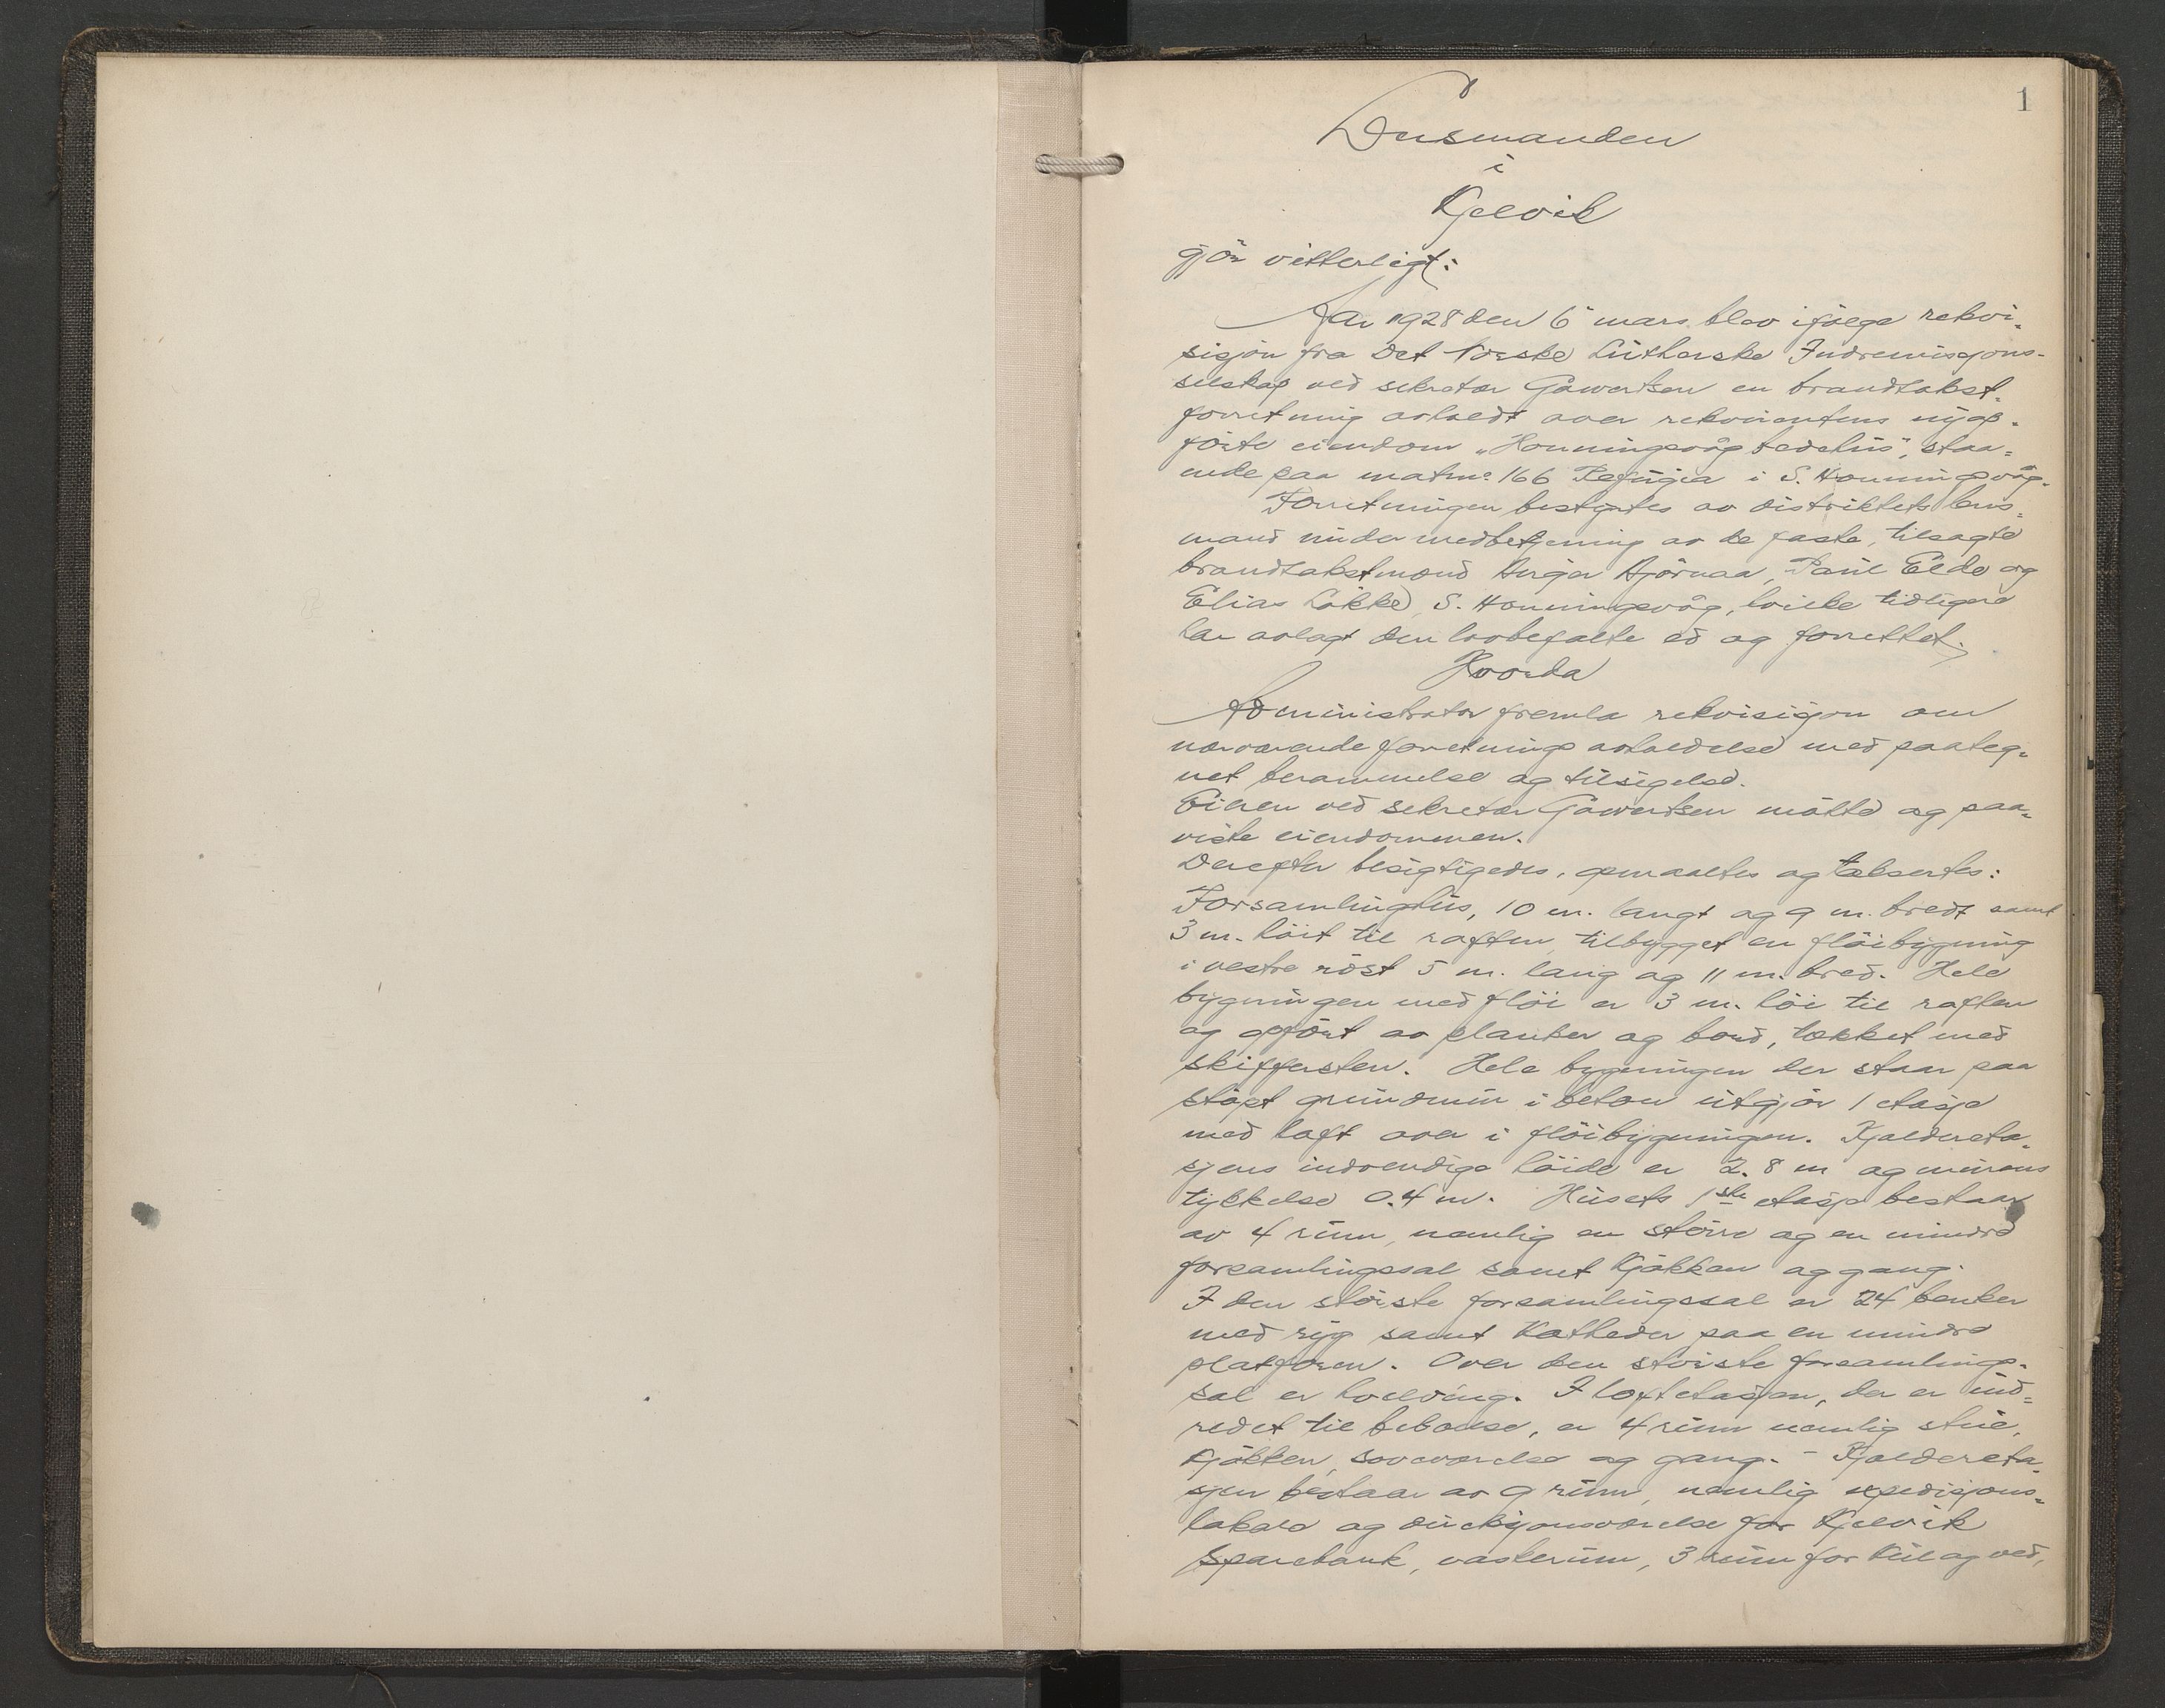 1
Lensmanden
i
Kjelvik
gjör vitterligt:
Aar 1928 den 6 mars blev ifølge rekvi-
sisjon fra Det Norske Lutherske Indremisjons-
selskap ved sekretær Gawertsen en brandtakst-
forretning avholdt over rekvirentens nyop-
förte eiendom „Honningsvåg bedehus", staa-
ende paa matrne 166 Refugia i S. Honningsvåg.
Forretningen bestyrtes av distriktets lens-
mand under medbetjening av de faste, tilsagte
brandtakstmænd Birger Bjørnaa, Paul Eide og
Elias Løkke, S. Honningsvåg, hvilke tidligere
har avlagt den lovbefalte ed og forrettet.
Hvorda
Administrator fremla rekvisisjon om
nærværende forretnings avholdelse med paateg-
net berammelse og tilsigelse.
Eieren ved sekretær Gawertsen møtte og paa-
viste eiendommen.
Derefter besigtigedes, opmaaltes og taksertes:
Forsamlingshus, 10 m. langt og 9 m. bredt samt
3 m. höit til raften, tilbygget en flöibygning
i vestre röst 5 m. lang og 11 m. bred. Hele
bygningen med flöi er 3 m. höi til raften
og opført av planker og bord, tækket med
skiffersten. Hele bygningen der staar paa
støpt grundmur i beton utgjör 1 etasje
med loft over i flöibygningen. Kjeldereta-
sjens indvendige höide er 2.8 m og murens
tykkelse 0.4 m. Husets 1ste etasje bestaar
av 4 rum, nemlig en større og en mindre
forsamlingssal samt kjøkken og gang.
I den største forsamlingssal er 24 benker
med ryg samt Katheder paa en mindre
platform. Over den største forsamlings-
sal er hvelving. I loftetasjen, der er ind-
redet til beboelse, er 4 rum nemlig stue,
kjøkken, soveværelse og gang. - Kjeldereta-
sjen bestaar av 9 rum, nemlig expedisjons-
lokale og direksjonsværelse for Kjelvik
Sparebank, vaskerum, 3 rum for kul og ved,